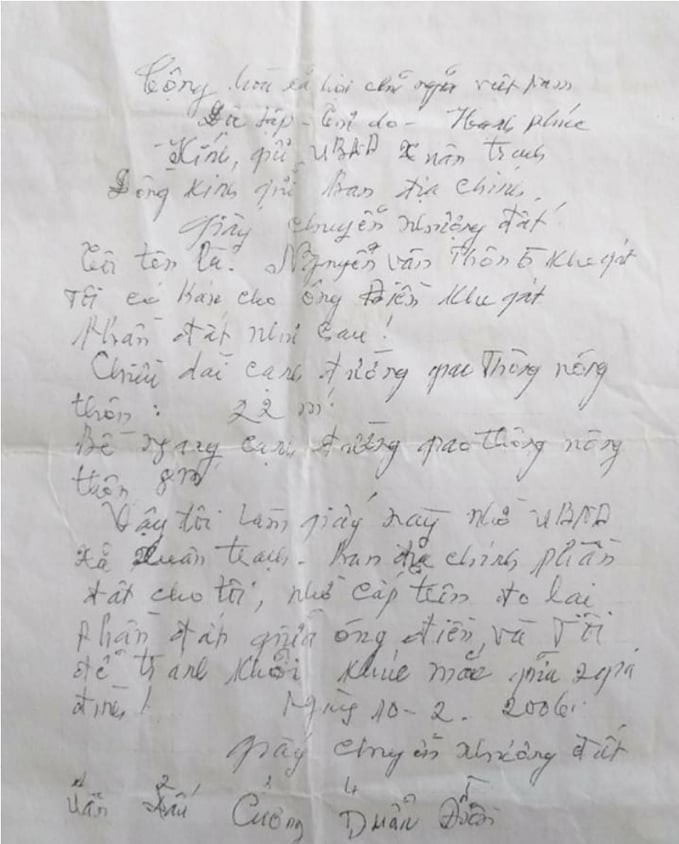 Cộng hòa xã hội chủ nghĩa việt nam
Độc lập - Tự do - Hạnh phúc
Kính gửi UBND Xuân trạch
Đồng kính gửi ban địa chính
giấy chuyển nhượng đất
Tôi tên là: Nguyễn văn Thôn 5 khe gát
Tôi có bán cho ông Điền khe gát
Phần đất như sau!
Chiều dài cạnh đường giao Thông nông
thôn: 22 m
Bề ngang cạnh đường giao thông nông
thôn 8m
Vậy tôi làm giấy này nhờ UBND
xã Xuân trạch. ban địa chính phần
đất cho tôi, nhờ cấp trên đo lại
phần đất giữa ông điền và Tôi
để tránh khỏi khúc mắc giữa 2 gia
đình! Ngày 10-2. 2006
giấy chuyển nhượng đất
1 2 3 4 5
Cường Duẩn Điền